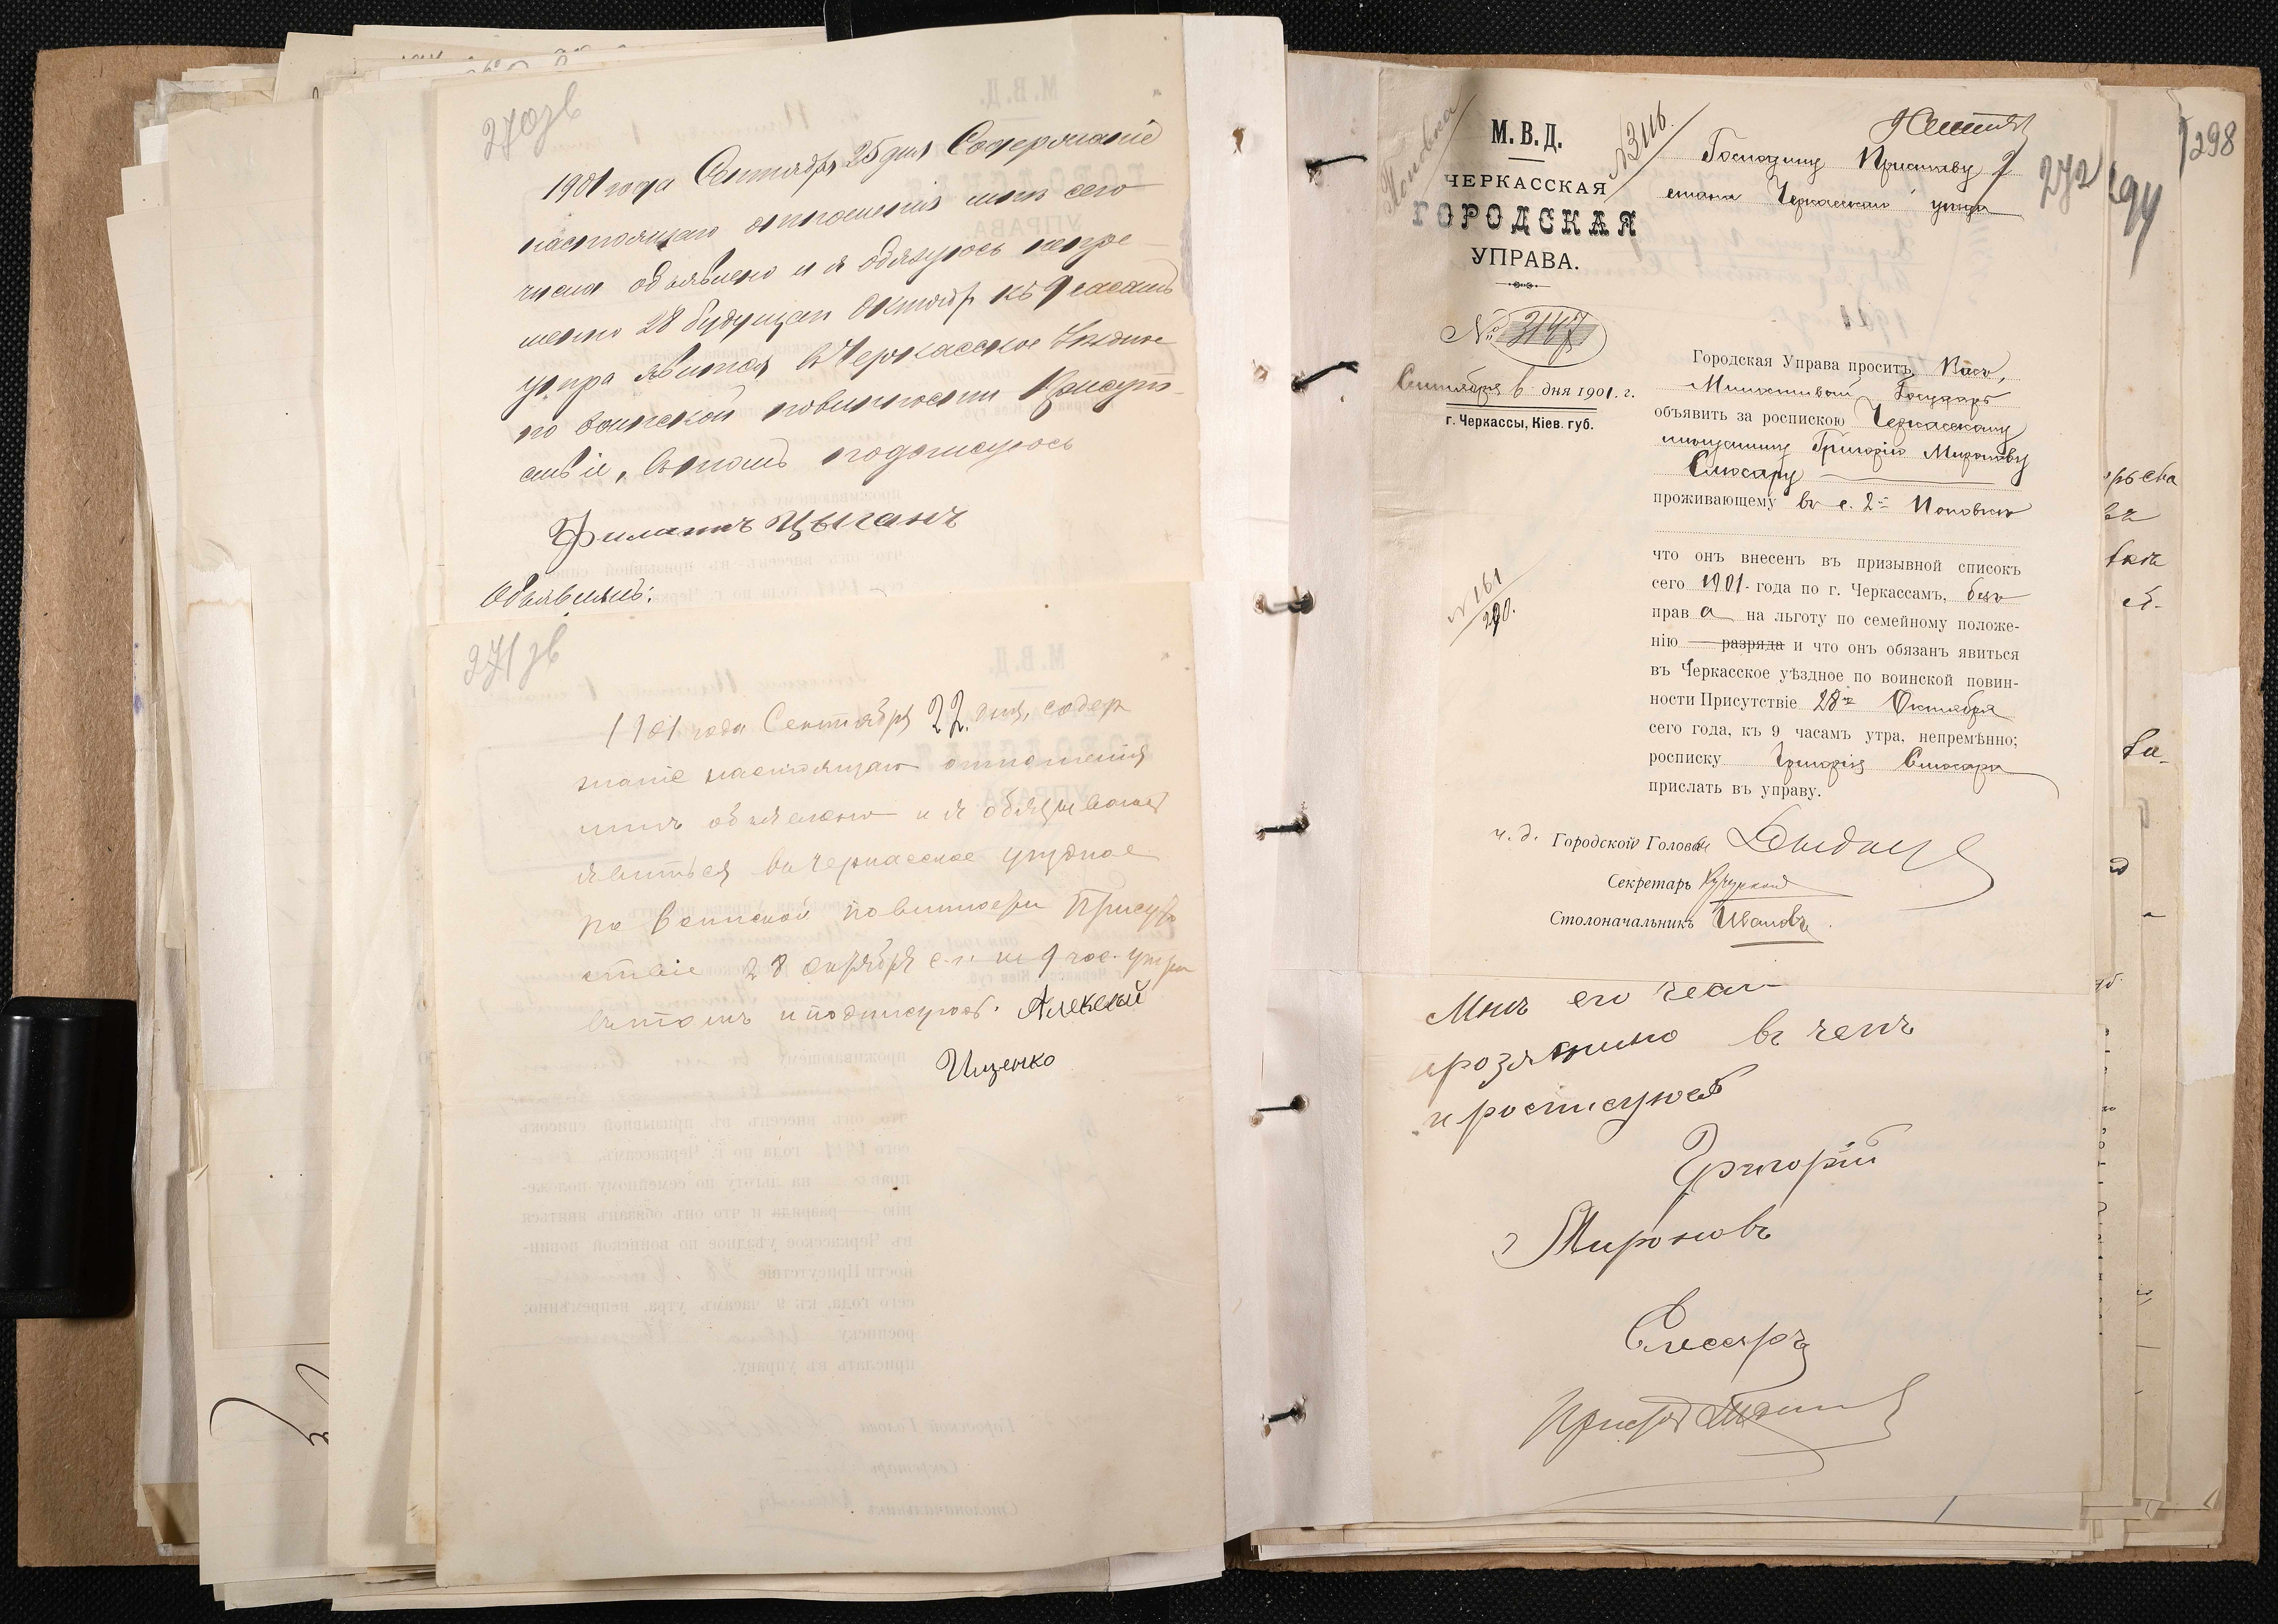 270зв
1901 года Сентября 25 дня Содержаніе
настоящаго отношенія мнѣ сего
числа объявлено и я обязуюсь непре-
менно 28 будущаго Октября къ 9 часамъ
утра явится въ Черкасское Уѣздное
по воинской повинности Присутс-
твіе, въ томъ подписуюсь
Филатъ Цыганъ
Объявилъ:
271зв
1901 года Сентября 22 дня, содер
жаніе настоящаго отношенія
мнѣ объявлено и я обязуюсь
явиться въ черкасское уездное
по воинской повинности Присут
ствіе 28 октября с.г. къ 9 час. утра
въ томъ и подписуюсь. Алексей
Ищенко
Поповка
М. В. Д.
ЧЕРКАССКАЯ
ГОРОДСКАЯ
УПРАВА.
№ 3147
Сентября 6 дня 1901 г.
г. Черкассы, Кіев. губ.
№ 161
N3116.
272
294
298
Господину Приставу 2
стана Черкасскаго уезда
Городская Управа проситъ Васъ,
Милостивый Государь
объявить за роспискою Черкасскому
мещанину Григорію Миронову
Слюсарю
проживающему въ с. 2-й Поповке
что онъ внесенъ въ призывной списокъ
сего 1901 года по г. Черкассамъ, безъ
права на льготу по семейному положе-
нію разряда и что онъ обязанъ явиться
въ Черкасское уѣздное по воинской повин-
ности Присутствіе 28го Октября
сего года, къ 9 часамъ утра, непремѣнно;
росписку Григорія Слюсаря
прислать въ управу.
и. д. Городской Головы
Секретарь
Столоначальникъ Ивановъ
Мнѣ его
въ чемъ
и росписуюсь
Григорій
Мироновъ
Слесаръ